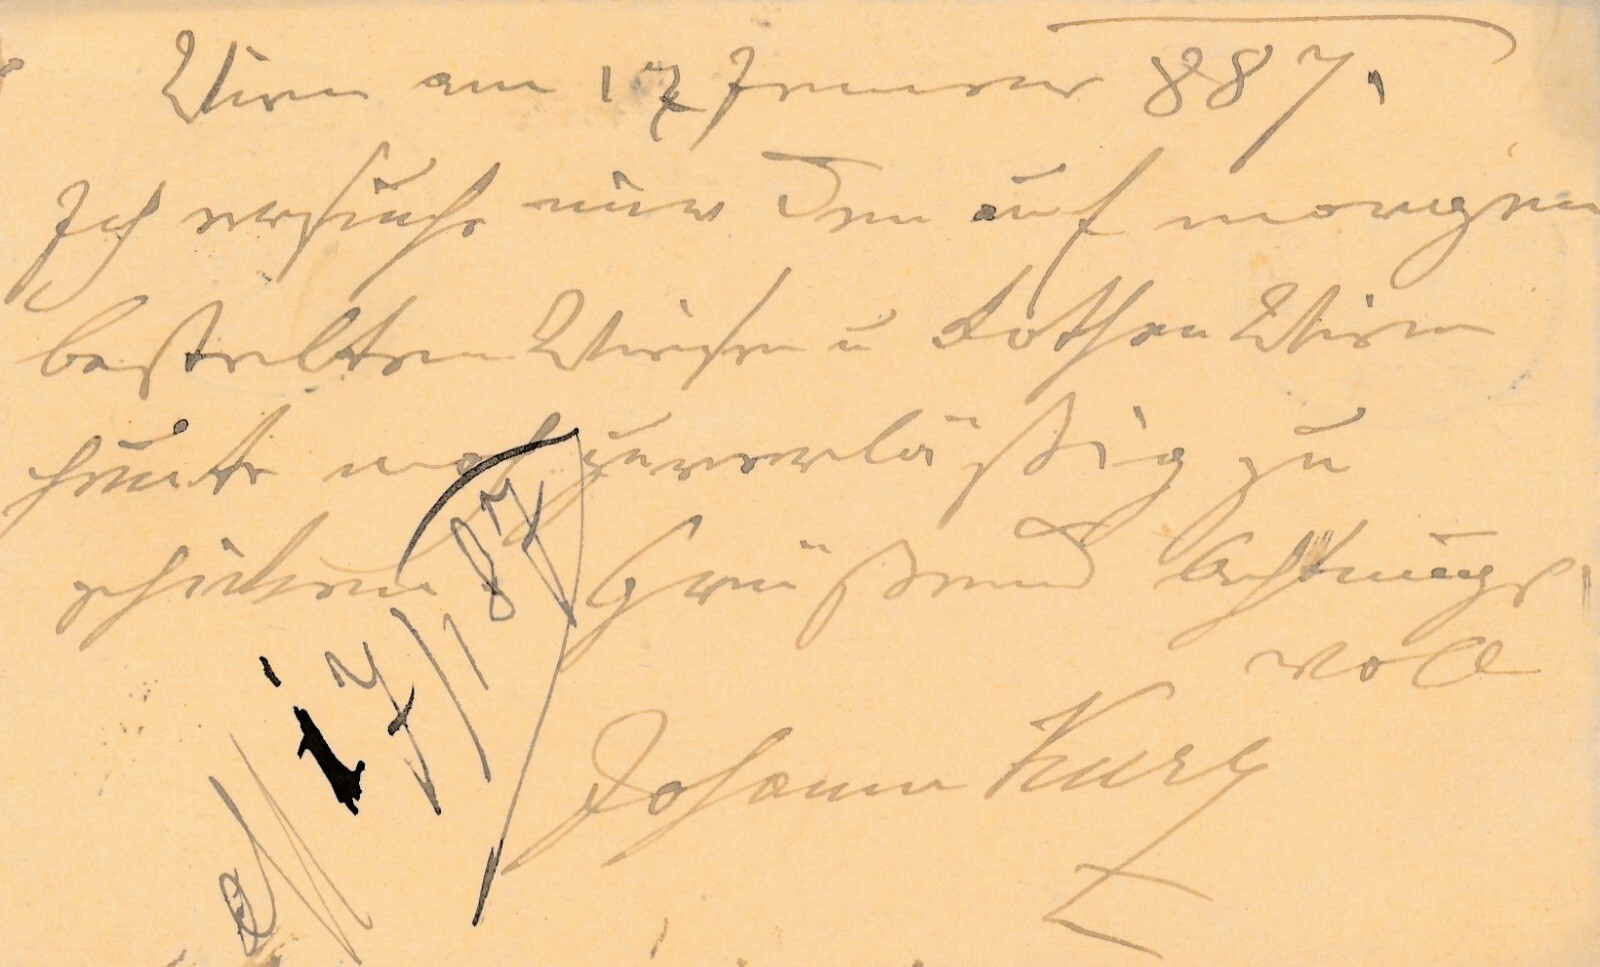 Wien am 17 Januar 887.
Ich ersuche mir den auf morgen
bestelten Weisen u Rothen Wein
heute noch zuverläßig zu
schicken Grüßend Achtungs
voll
Johann Kurz
17/1 87